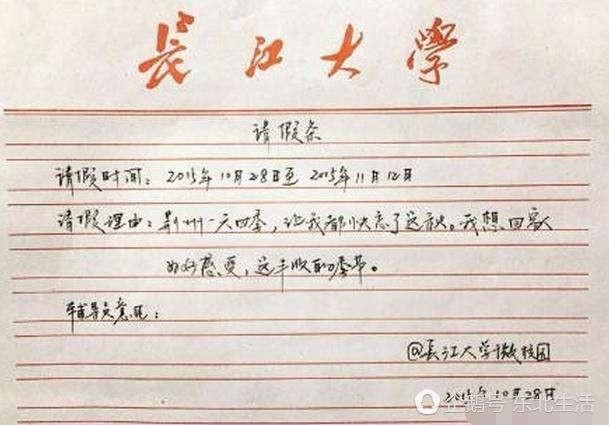 長江大学
请假条
请假时间：2015年10月28日至2015年11月12日
请假理由：荆州一天四季，让我都快忘了这秋。我想回家
好好感受，这丰收的季节。
辅导员意见：
@長江大学微校园
2015年10月28日
企鹅号 东北生活